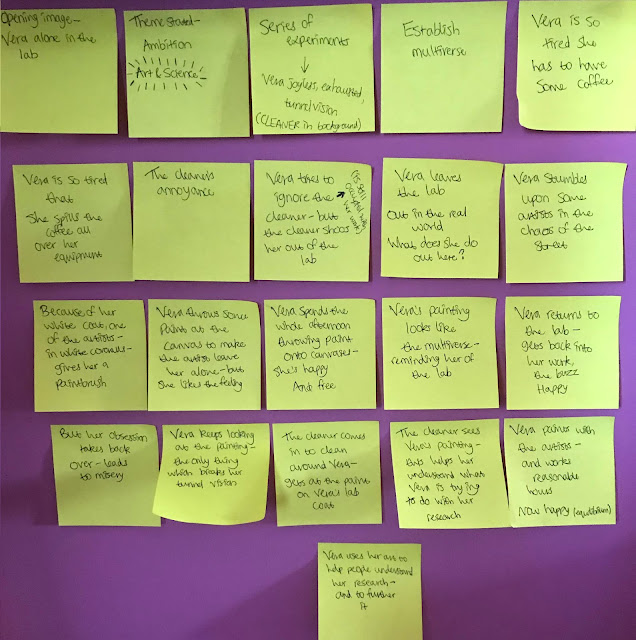 Opening image-
Vera alone in the
lab
Theme stated-
Ambition
Art & Science
Series of
experiments
↓
Vera joyless, exhausted,
tunnel vision
(CLEANER in background)
Establish
multiverse
Vera is so
tired she
has to have
some coffee
Vera is so tired
that
She spills the
coffee all
over her
equipment
The cleaner's
annoyance
Vera tries to
ignore the
cleaner - but
the cleaner shoos
her out of the
lab
(is still
occupied with
her work)
Vera leaves
the lab
Out in the real
world
What does she do
out here?
Vera stumbles
upon some
artists in the
chaos of the
street
Because of her
white coat, one
of the artists -
in white
gives her a
paintbrush
Vera throws some
paint at the
canvas to make
the artist leave
her alone - but
she likes the feeling
Vera spends the
whole afternoon
throwing paint
onto canvases -
she's happy
And free
Vera's painting
looks like
the multiverse -
reminding her of
the lab
Vera returns to
the lab -
gets back into
her work,
the buzz
Happy
But her obsession
takes back
over - leads
to misery
Vera keeps looking
at the painting -
the only thing
which breaks her
tunnel vision
The cleaner comes
in to clean
around Vera -
gets at the paint
on Vera's lab
coat
The cleaner sees
Vera's painting -
this helps her
understand what
Vera is trying
to do with her
research
Vera paints with
the artists -
and works
reasonable
hours
Now happy (equilibrium)
Vera uses her art to
help people understand
her research -
and to further
it